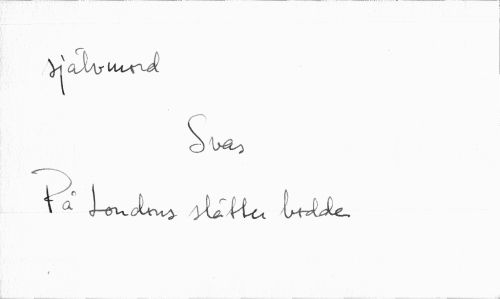 självmord
Svas
På Londons slätter bodde